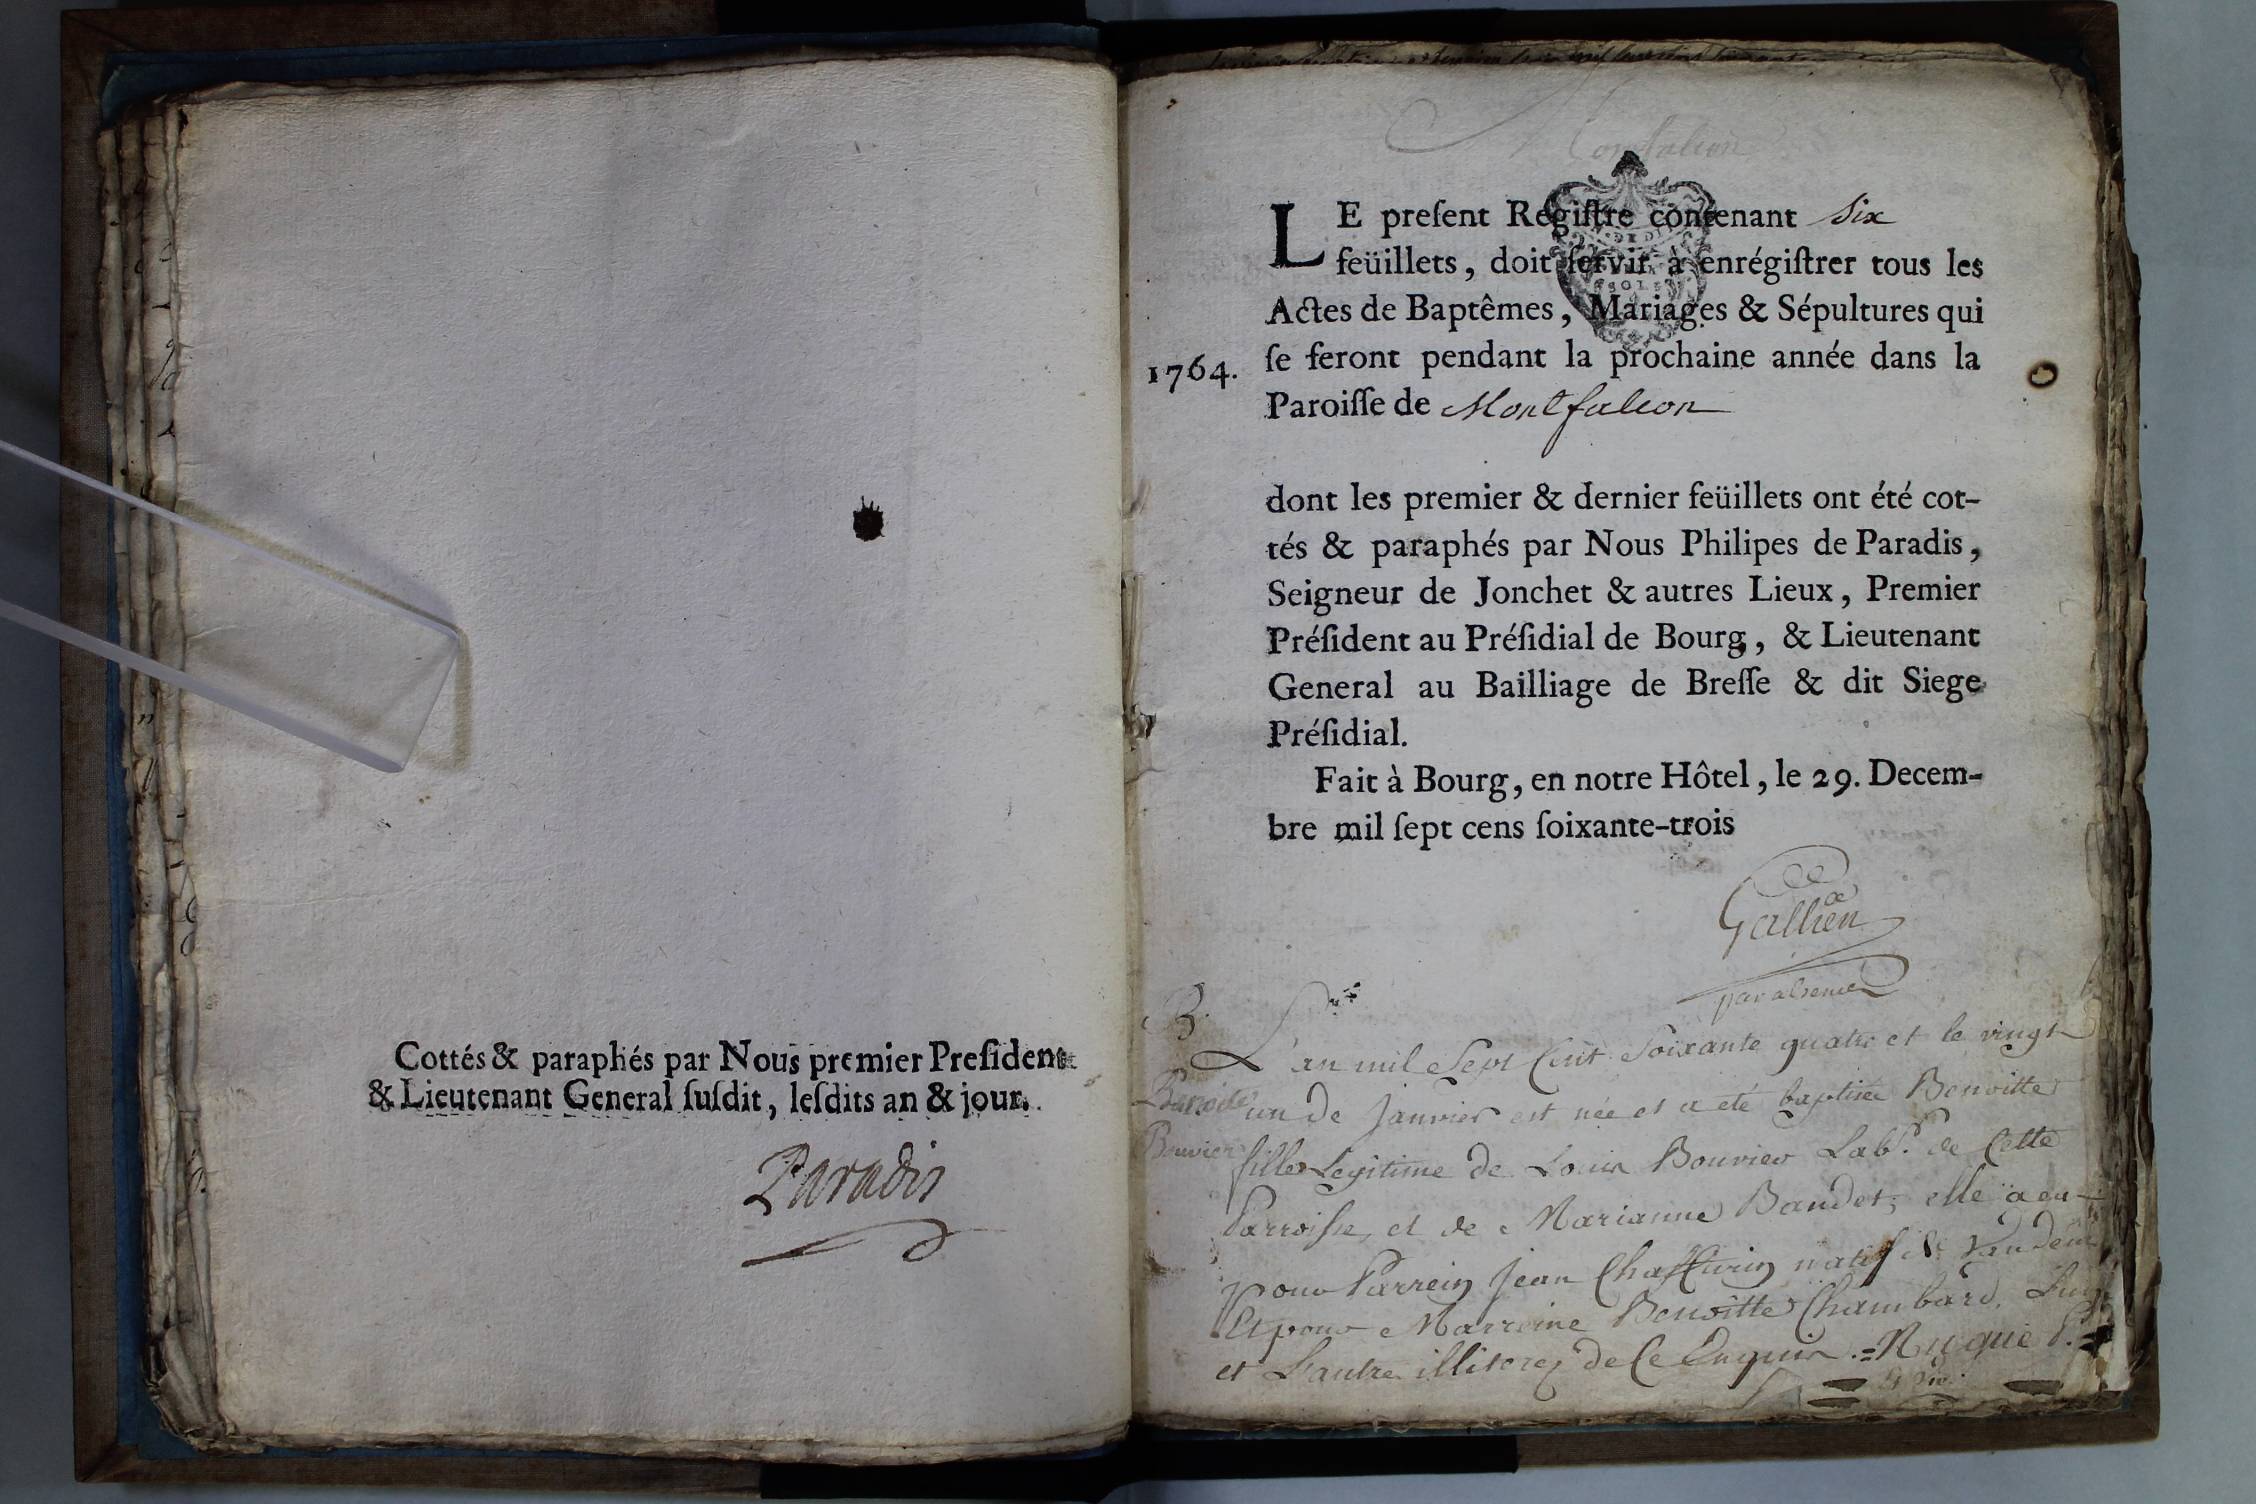 Cottés & paraphés par Nous premier Preſident
& Lieutenant General ſuſdit, leſdits an & jour.
Paradis
LE preſent Regiſtre contenant Six
feüillets, doit ſervir à enrégiſtrer tous les
Actes de Baptêmes, Mariages & Sépultures qui
ſe feront pendant la prochaine année dans la
1764.
Paroiſſe de Montfalcon
dont les premier & dernier feüillets ont été cot-
tés & paraphés par Nous Philipes de Paradis,
Seigneur de Jonchet & autres Lieux, Premier
Préſident au Préſidial de Bourg, & Lieutenant
General au Bailliage de Breſſe & dit Siege
Préſidial.
Fait à Bourg, en notre Hôtel, le 29. Decem-
bre mil ſept cens ſoixante-trois
Gallien
par absence
B.
Benoite
Bouvier
L'an mil Sept Cent Soixante quatre et le vingt
un de Janvier est née et a eté baptisée Benoitte
fille Legitime de Louis Bouvier Lab.r de Cette
Parroisse, et de Marianne Baudet, elle a eu
pour Parrein Jean Chaffurin natif de
Et pour Marreine Benoitte Chambard. L'un
et L'autre illiterez de Ce Enquis.